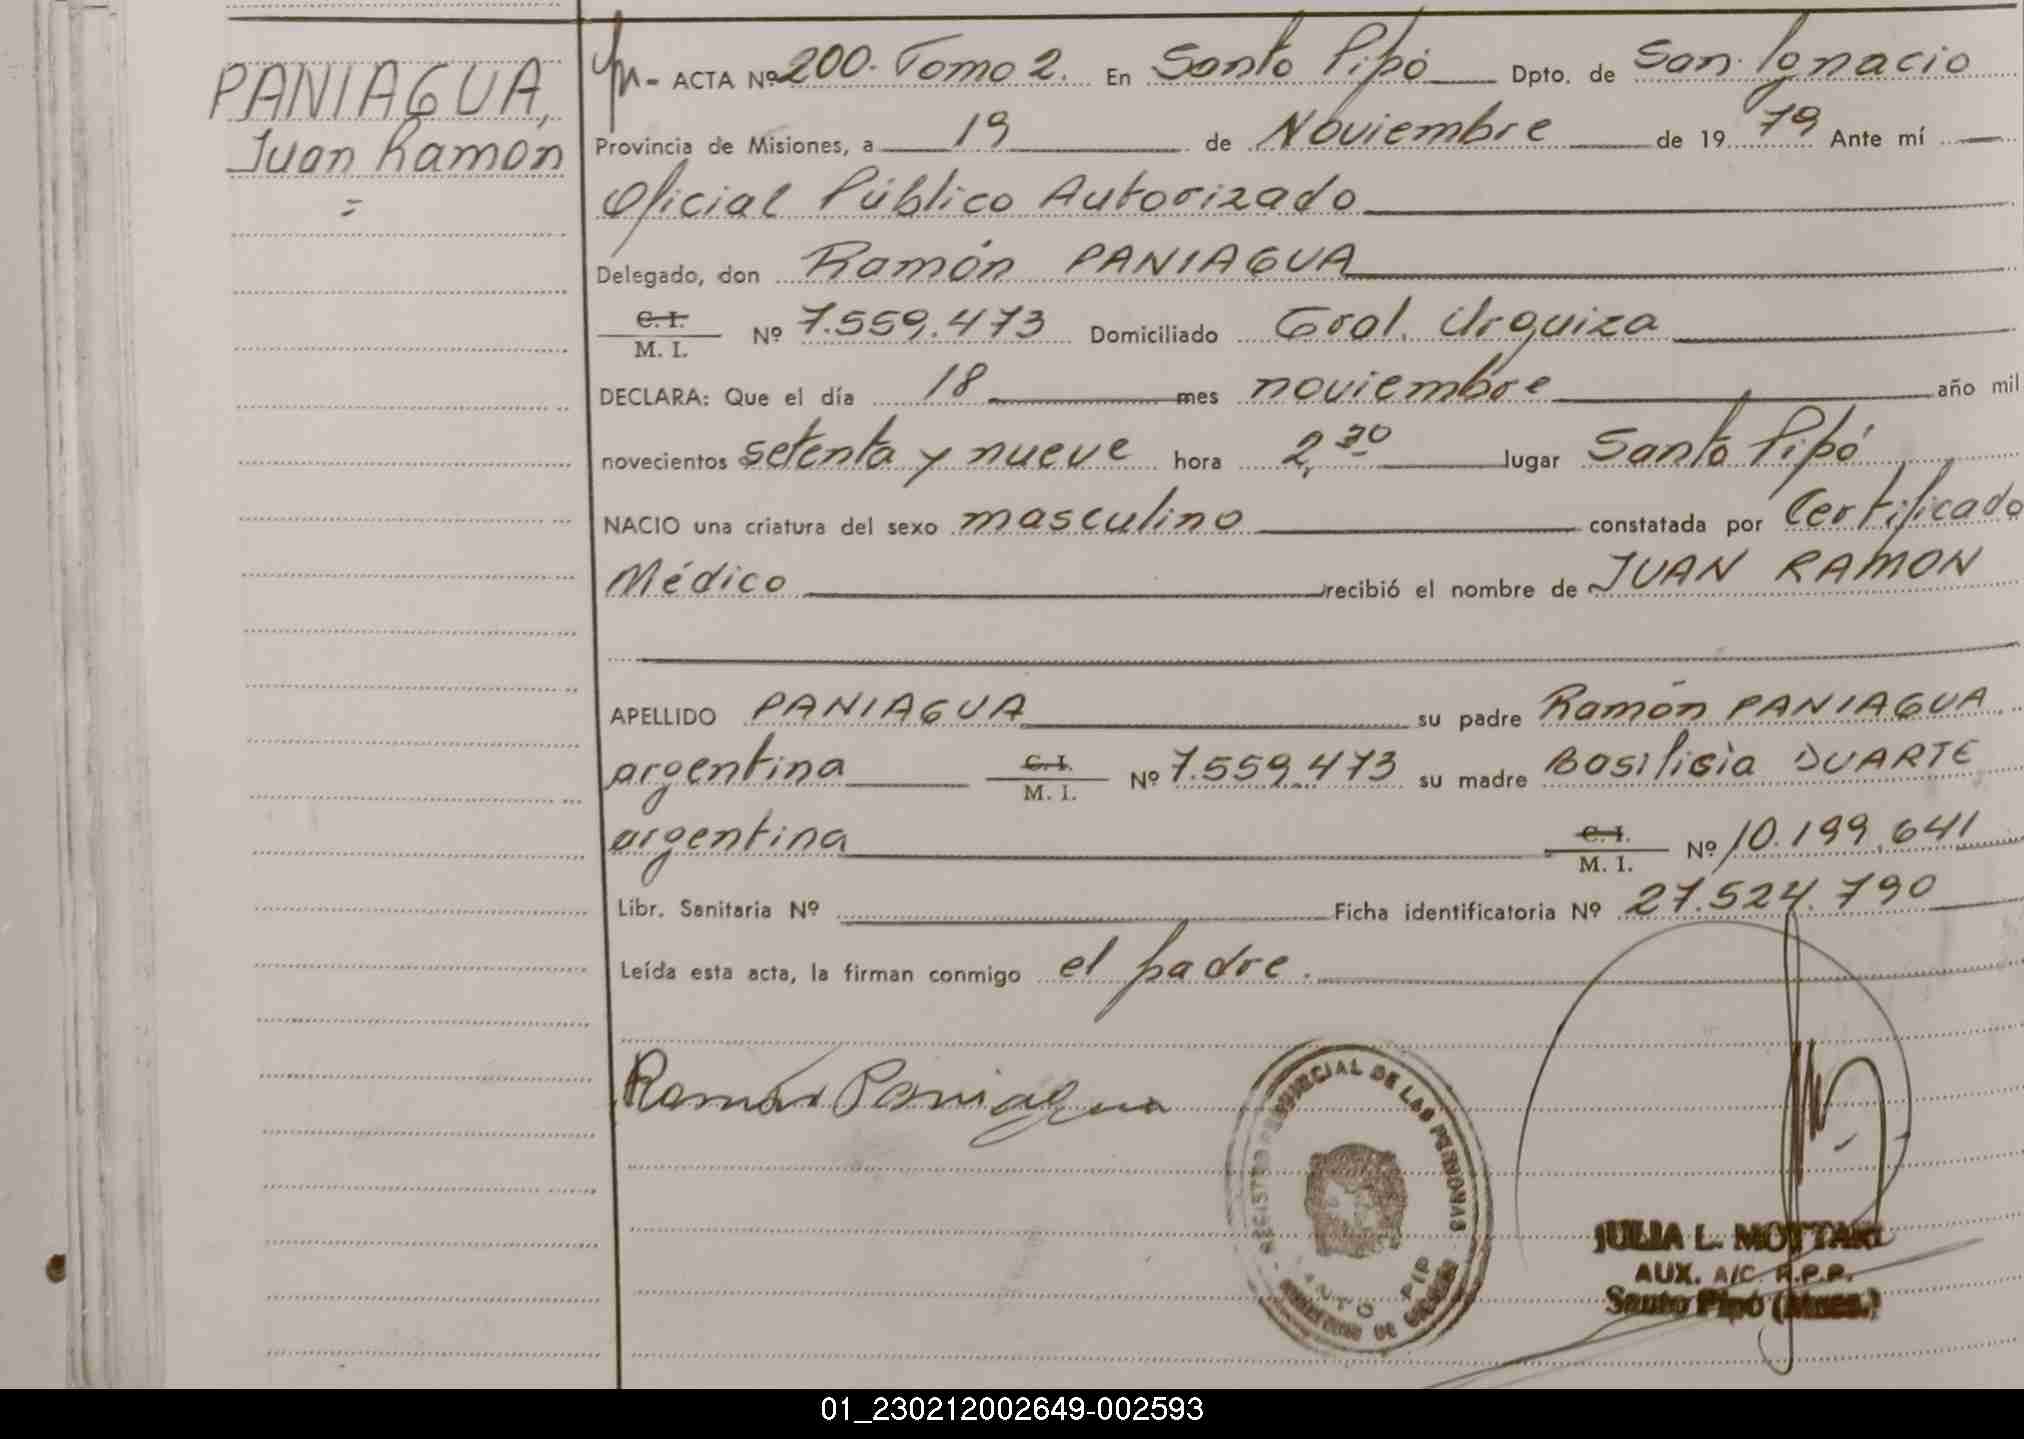 PANIAGUA,
Juan Ramón
=
ACTA Nº 200. Tomo 2. En Santo Pipó Dpto. de San Ignacio
Provincia de Misiones, a 19 de Noviembre de 19 79 Ante mí
Oficial Público Autorizado
Delegado, don Ramón PANIAGUA
C. I.
M. I. Nº 7.559.473 Domiciliado Gral. Urquiza
DECLARA: Que el día 18 mes noviembre año mil
novecientos setenta y nueve hora 2,30 lugar Santo Pipó
NACIO una criatura del sexo masculino constatada por Certificado
Médico recibió el nombre de JUAN RAMON
APELLIDO PANIAGUA su padre Ramón PANIAGUA
argentina C. I. M. I. Nº 7.559.473 su madre Basilisia DUARTE
argentina C. I. M. I. Nº 10.199.641
Libr. Sanitaria Nº Ficha identificatoria Nº 27.524.790
Leída esta acta, la firman conmigo el padre.
Ramón Paniagua
REGISTRO PROVINCIAL DE LAS PERSONAS
JULIA L. MOTTARI
AUX. A/C. R.P.P.
Santo Pipó (Mnes.)
01_230212002649-002593